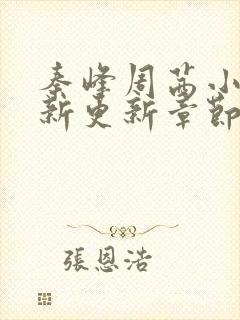 秦峰周茜小
新更新章節
張恩浩